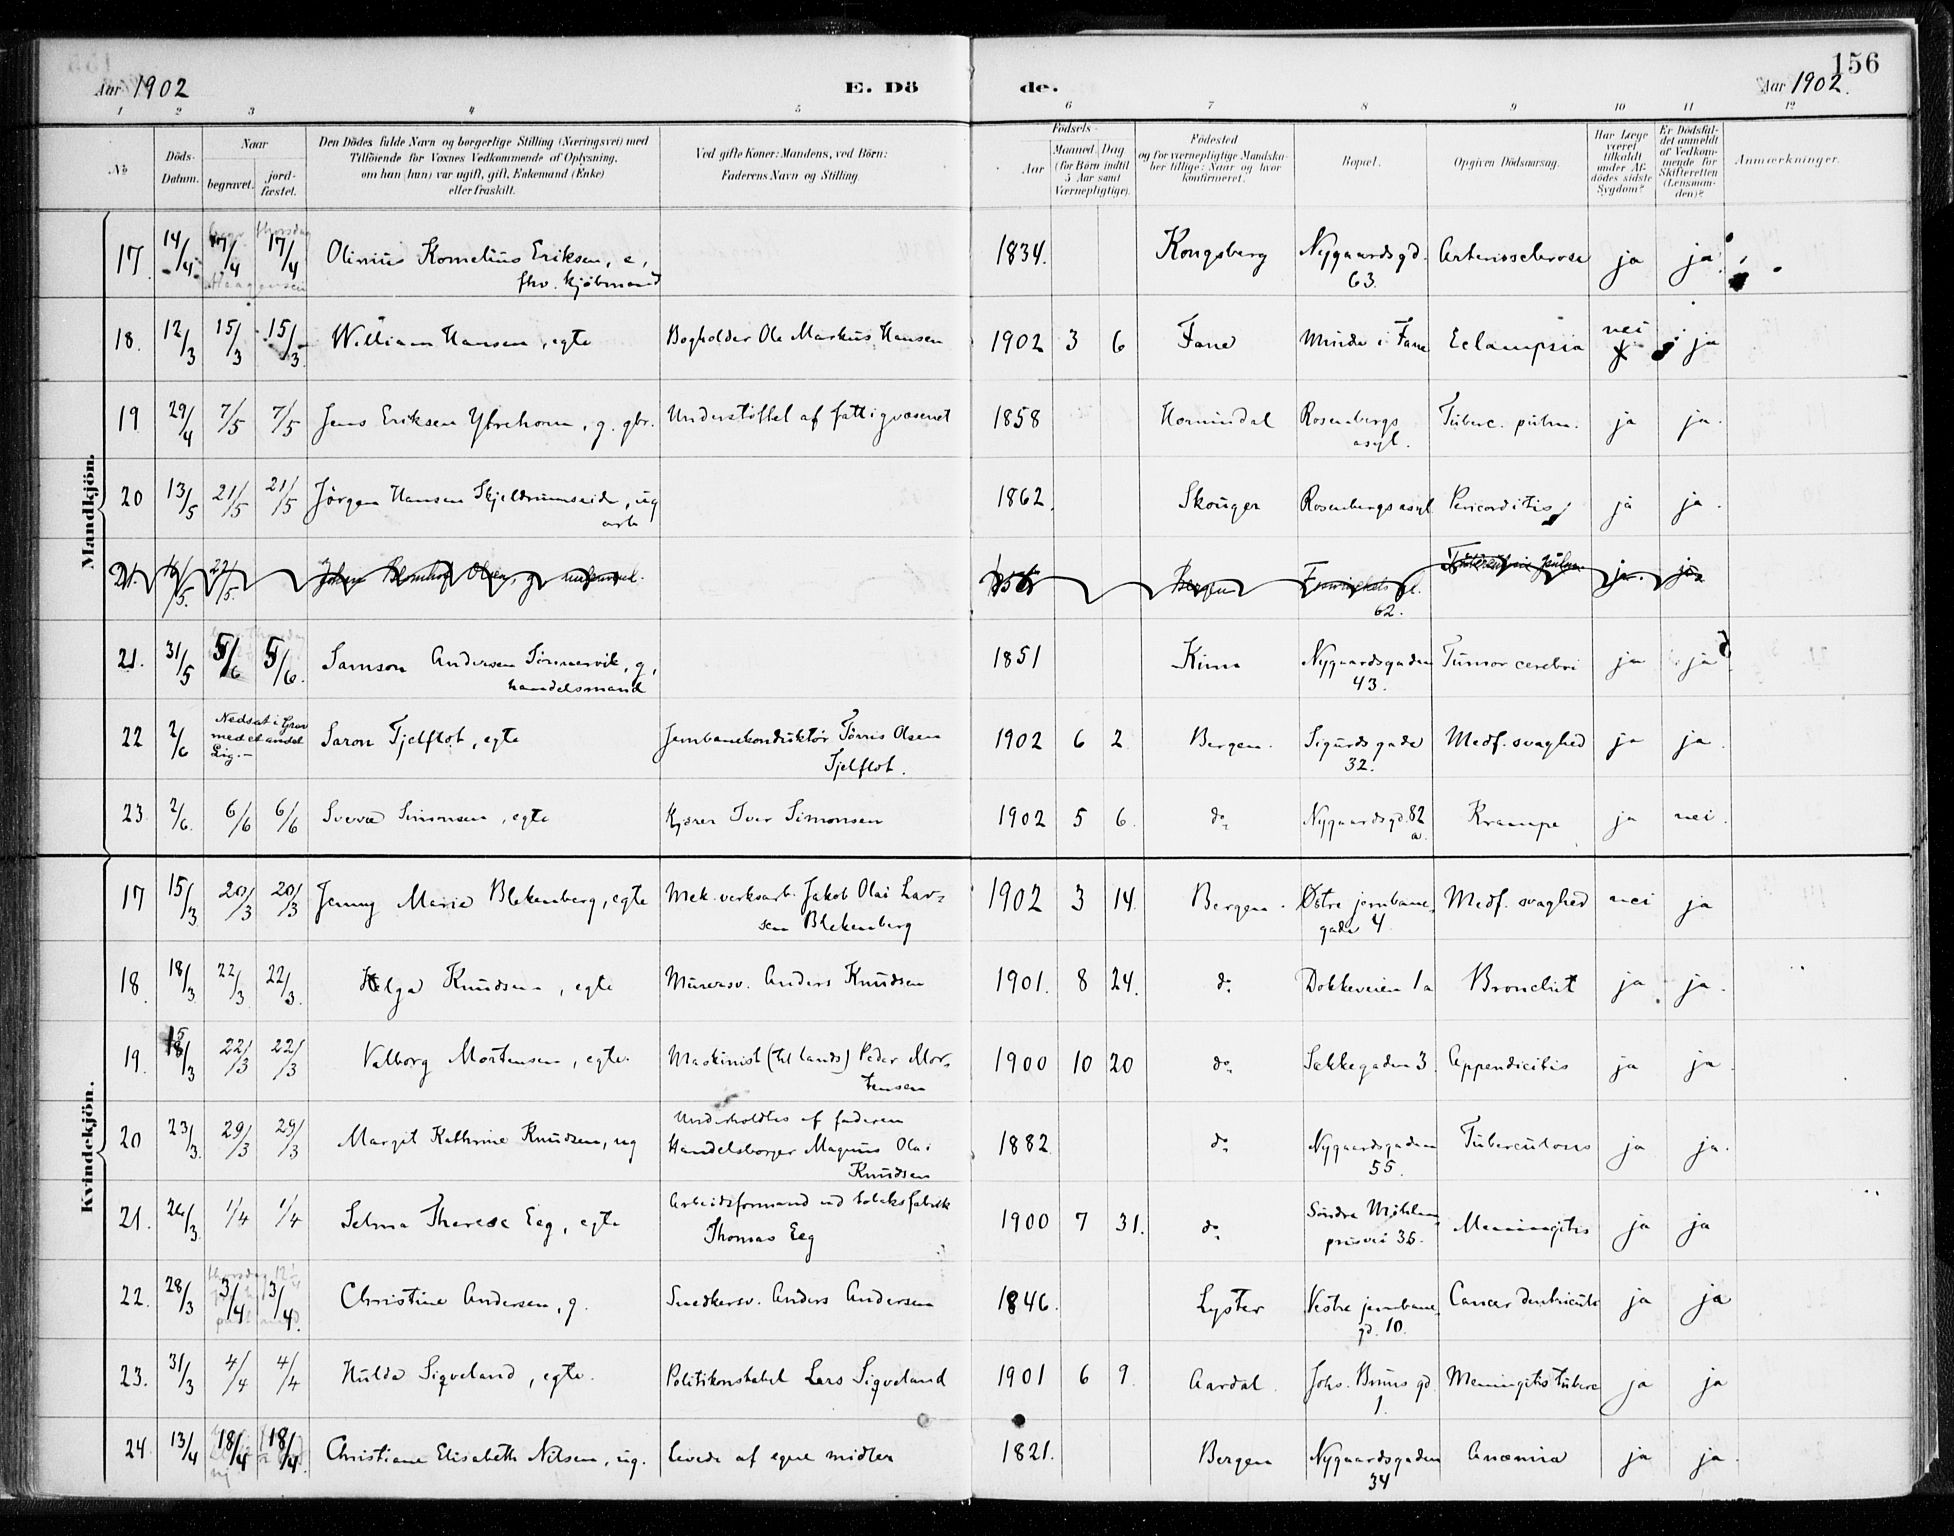 156
Aar 1902
E. Dö
de.
Aar 1902.
1 2 3 4 5 6 7 8 9 10 11 12
No
Döds-Datum.
Naar
begravet.
jord-fæstet.
Den Dödes fulde Navn og borgerlige Stilling (Næringsvei) med
Tilföiende for Voxnes Vedkommende af Oplysning,
om han (hun) var ugift, gift, Enkemand (Enke)
eller fraskilt.
Ved gifte Koner: Mandens, ved Börn:
Faderens Navn og Stilling.
Födsels-
Aar
Maaned Dag
(for Börn indtil
5 Aar samt
Værnepligtige).
Födested
og for værnepligtige Mandska-
ber tillige: Naar og hvor
konfirmeret.
Bopæl.
Opgiven Dödsaarsag.
Har Læge
været
tilkaldt
under Af-
dödes sidste
Sygdom?
Er Dödsfal-
det anmeldt
af Vedkom-
mende for
Skifteretten
(Lensman-
den)?
Anmærkninger.
Mandkjön.
17. 14/4 17/4 17/4 Olinius Kornelius Eriksen, e, 1834. Kongsberg Nygaardsgd. Arteriosclerose ja ja
fhv. kjöbmand 63.
18. 12/3 15/3 15/3 William Hansen, egte Bogholder Ole Markus Hansen 1902 3 6 Fane Minde i Fane Eclampsia nei ja
19 29/4 7/5 7/5 Jens Eriksen Ytrehorn, g. gbr. Understöttet af fattigvæsenet 1858 Hornindal Rosenbergs Tuberc. pulm. ja ja.
asyl.
20 13/5 21/5 21/5 Jörgen Hansen Skjeldrumseide, ug 1862. Skouger Rosenbergs asyl Pericarditis ja ja.
arb
21. 22/5. Johan Olsen, g. Bergen ja. ja
62.
21. 31/5 5/6 5/6. Samson Andersen Tönnesvik, g, 1851 Kinn Nygaardsgaden Tumor cerebri ja ja
handelsmand 43.
22 2/6 Nedsat i Grav
med et andet
Lig.-
Saron Tjelflot, egte Jernbanekonduktör Törris Olsen 1902 6 2 Bergen. Sigurdsgade Medf. svaghed ja ja.
Tjelflot. 32.
23 2/6. 6/6 6/6 Sverre Simonsen, egte Kjörer Iver Simonsen 1902 5 6. do. Nygaardsgd. 82 Krampe ja nei.
a.
Kvindekjön.
17 15/3 20/3 20/3 Jenny Marie Blekenberg, egte Mek. verksarb. Jakob Olai Lar- 1902 3 14. Bergen. Østre jernbane- Medf. svaghed nei ja
sen Blekenberg gade 4
18. 18/3 22/3 22/3. Helga Knudsen, egte Murersv. Anders Knudsen 1901. 8 24. do. Dokkeveien 1a Bronchit ja ja.
19. 15/3 22/3 22/3 Valborg Mortensen, egte. Maskinist (til lands) Peder Mor- 1900 10 20 do. Sekkegaden 3. Appendicitis ja ja.
tensen
20 23/3. 29/3 29/3 Margit Kathrine Knudsen, ug Underholdtes af faderen
Handelsborger Magnus Olai 1882. do. Nygaardsgaden Tuberculous ja ja.
Knudsen 55.
21. 26/3. 1/4 1/4 Selma Therese Eeg, egte Arbeidsformand ved tobaksfabrik
Thomas Eeg 1900 7 31. do. Söndre Möhlen-
prisvei 36. Meningitis ja ja
22. 28/3 3/4 3/4. Christine Andersen, g. Snedkersv. Anders Andersen 1846. Lyster Vestre jernbane- Cancer ventriculi ja ja
gd. 10.
23. 31/3 4/4 4/4 Hulda Sigveland, egte. Politikonstabel Lars Sigveland 1901 6 9. Aardal. Johs. Bruns gd. Meningitis tuberc ja ja
1.
24. 13/4 18/4 18/4. Christiane Elisabeth Nilsen, ug. Levede af egne midler 1821. Bergen Nygaardsgaden Anæmia ja ja.
34